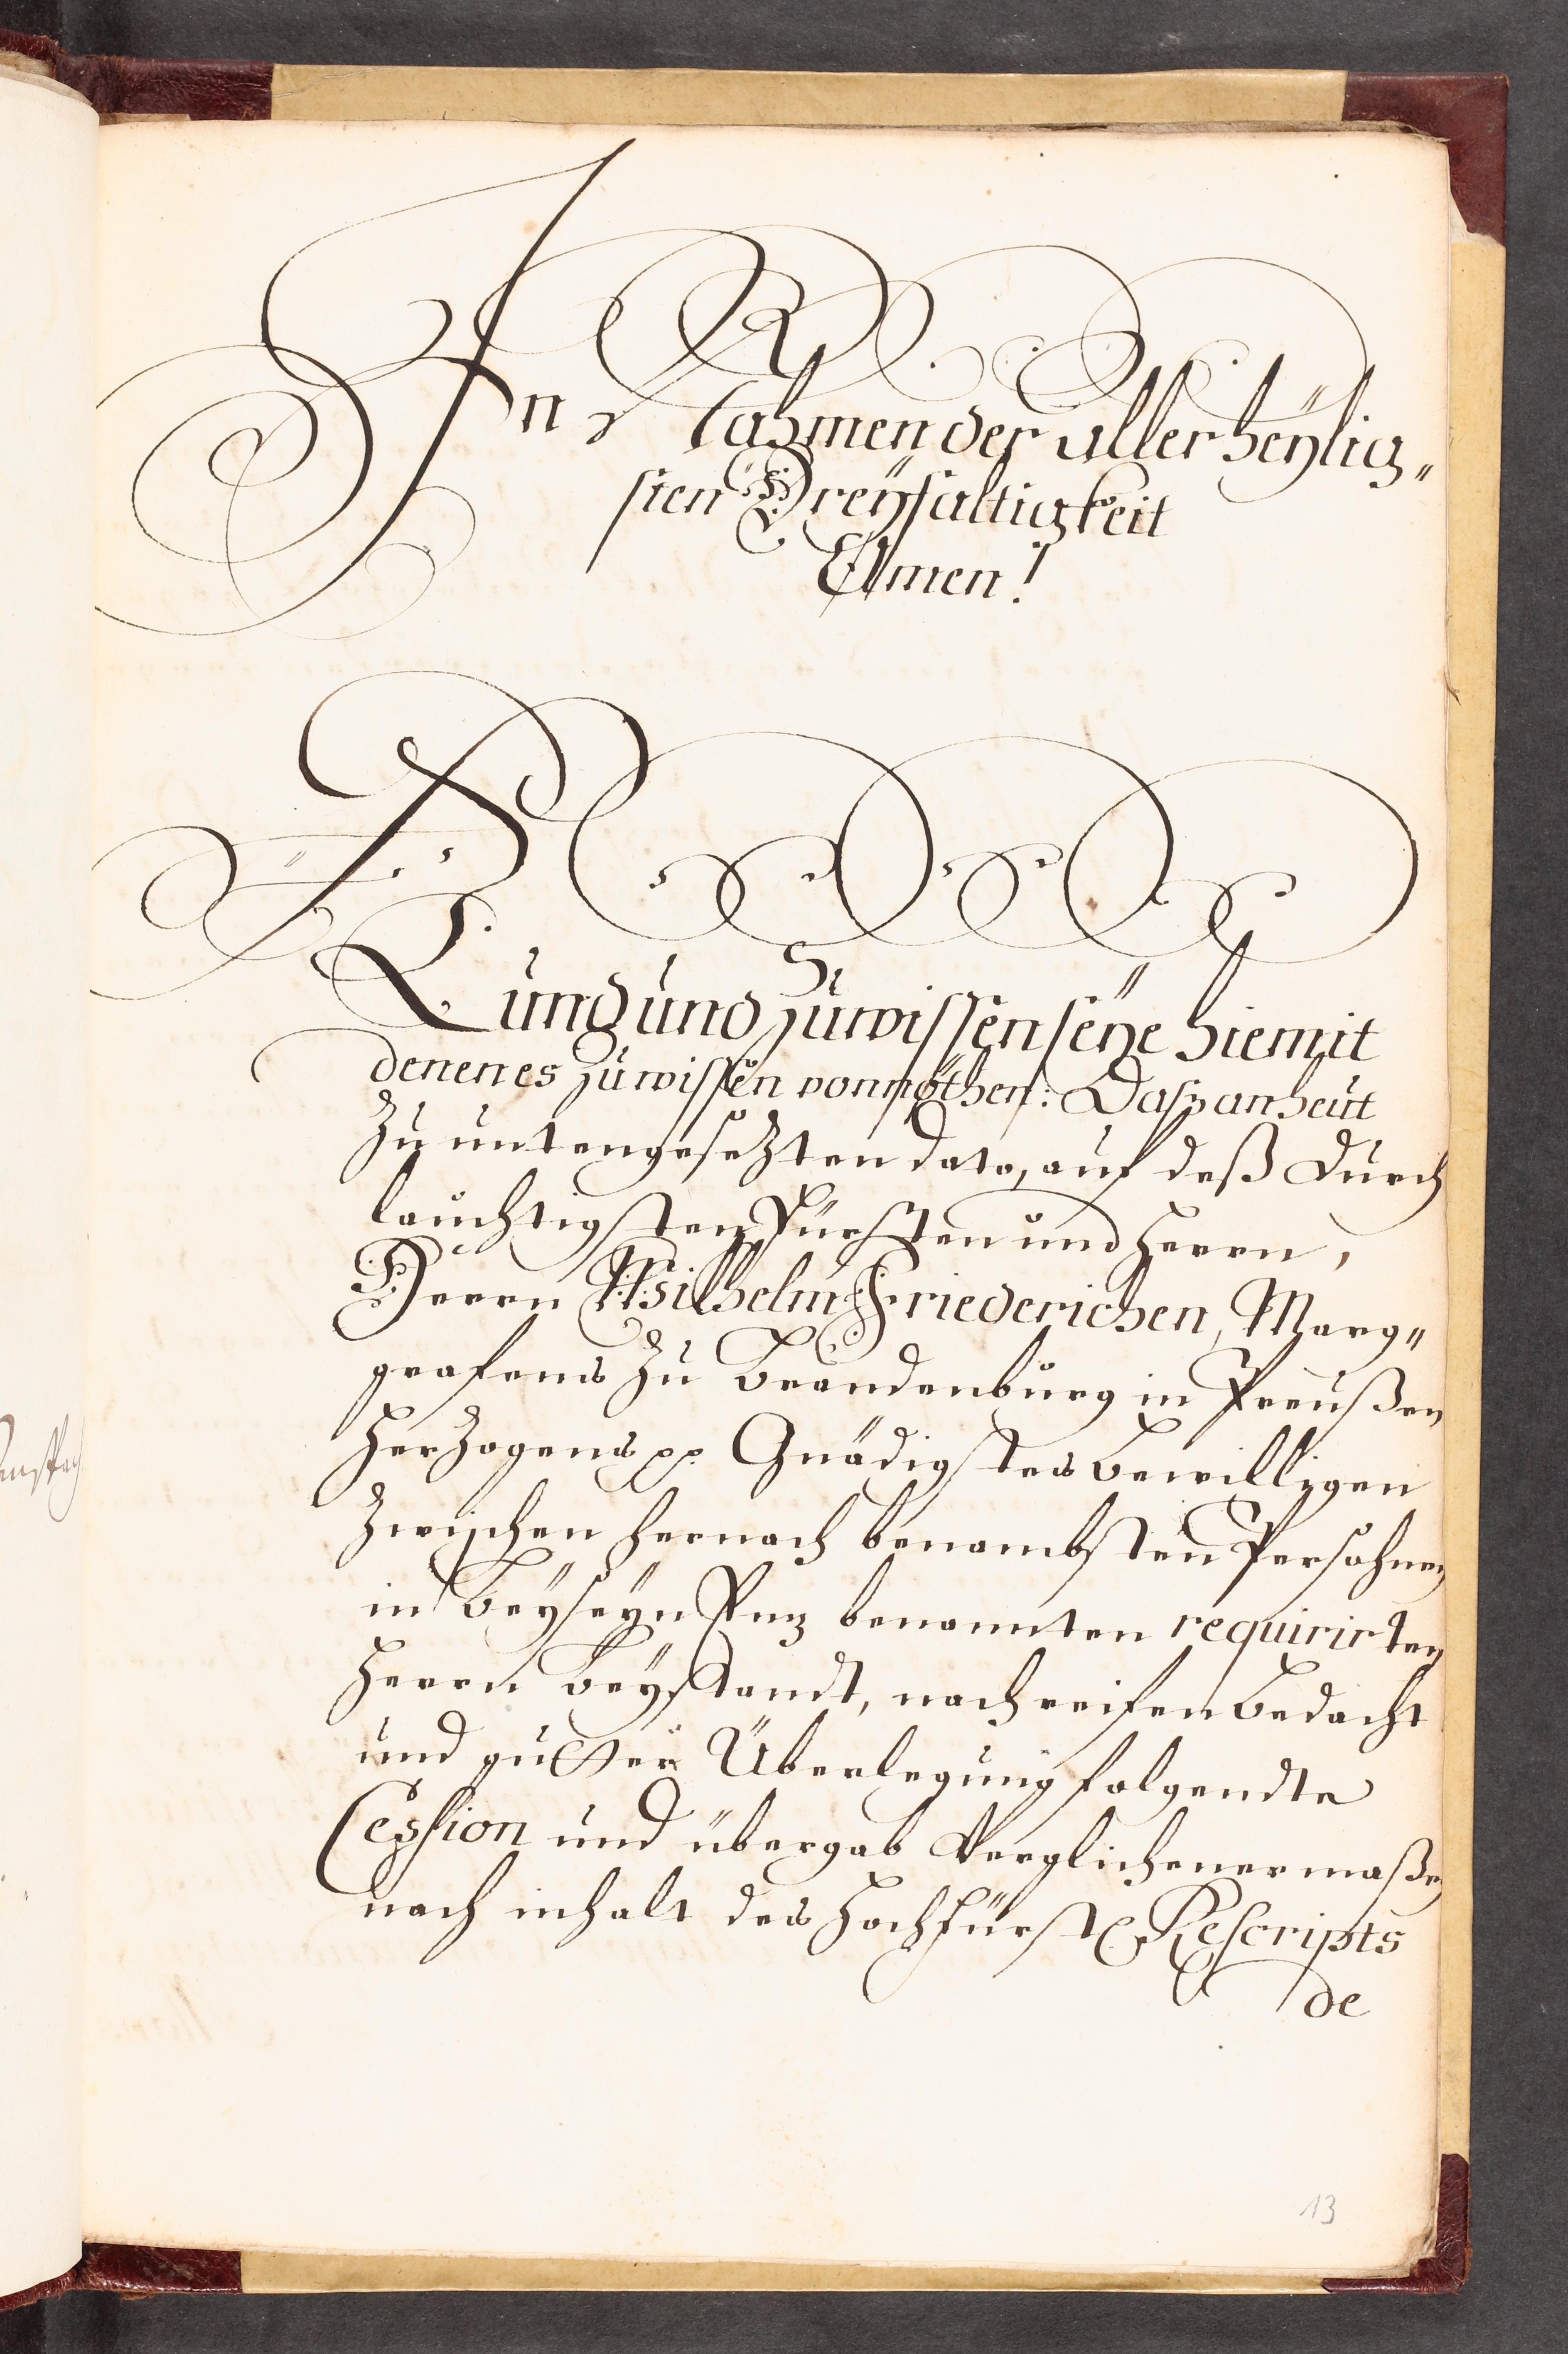 In Nahmen der aller heÿlig„
sten Dreÿfaltigkeit
Amen!
Kund und Zuwissen seÿe hiemit
denen es Zu wissen vonnöthen: Dasz anheut
Zu untengesezten dato, auf deß Durch
lauchtigsten Fürsten und Herrn,
Herrn Wilhelm Friederichen, Marg„
grafens Zu Brandenburg in Preußen
Herzogens pp. Gnädigstes bewilligen
Zwischen hernach benambsten Persohnen
in Beÿseÿn benannten requirirten
Herrn Beÿstandt, nach reifen bedacht
und gutter Überlegung folgendte
Cession und übergab Verglichener maßen
nach inhalt des Hochfürstl. Rescripts
de
13